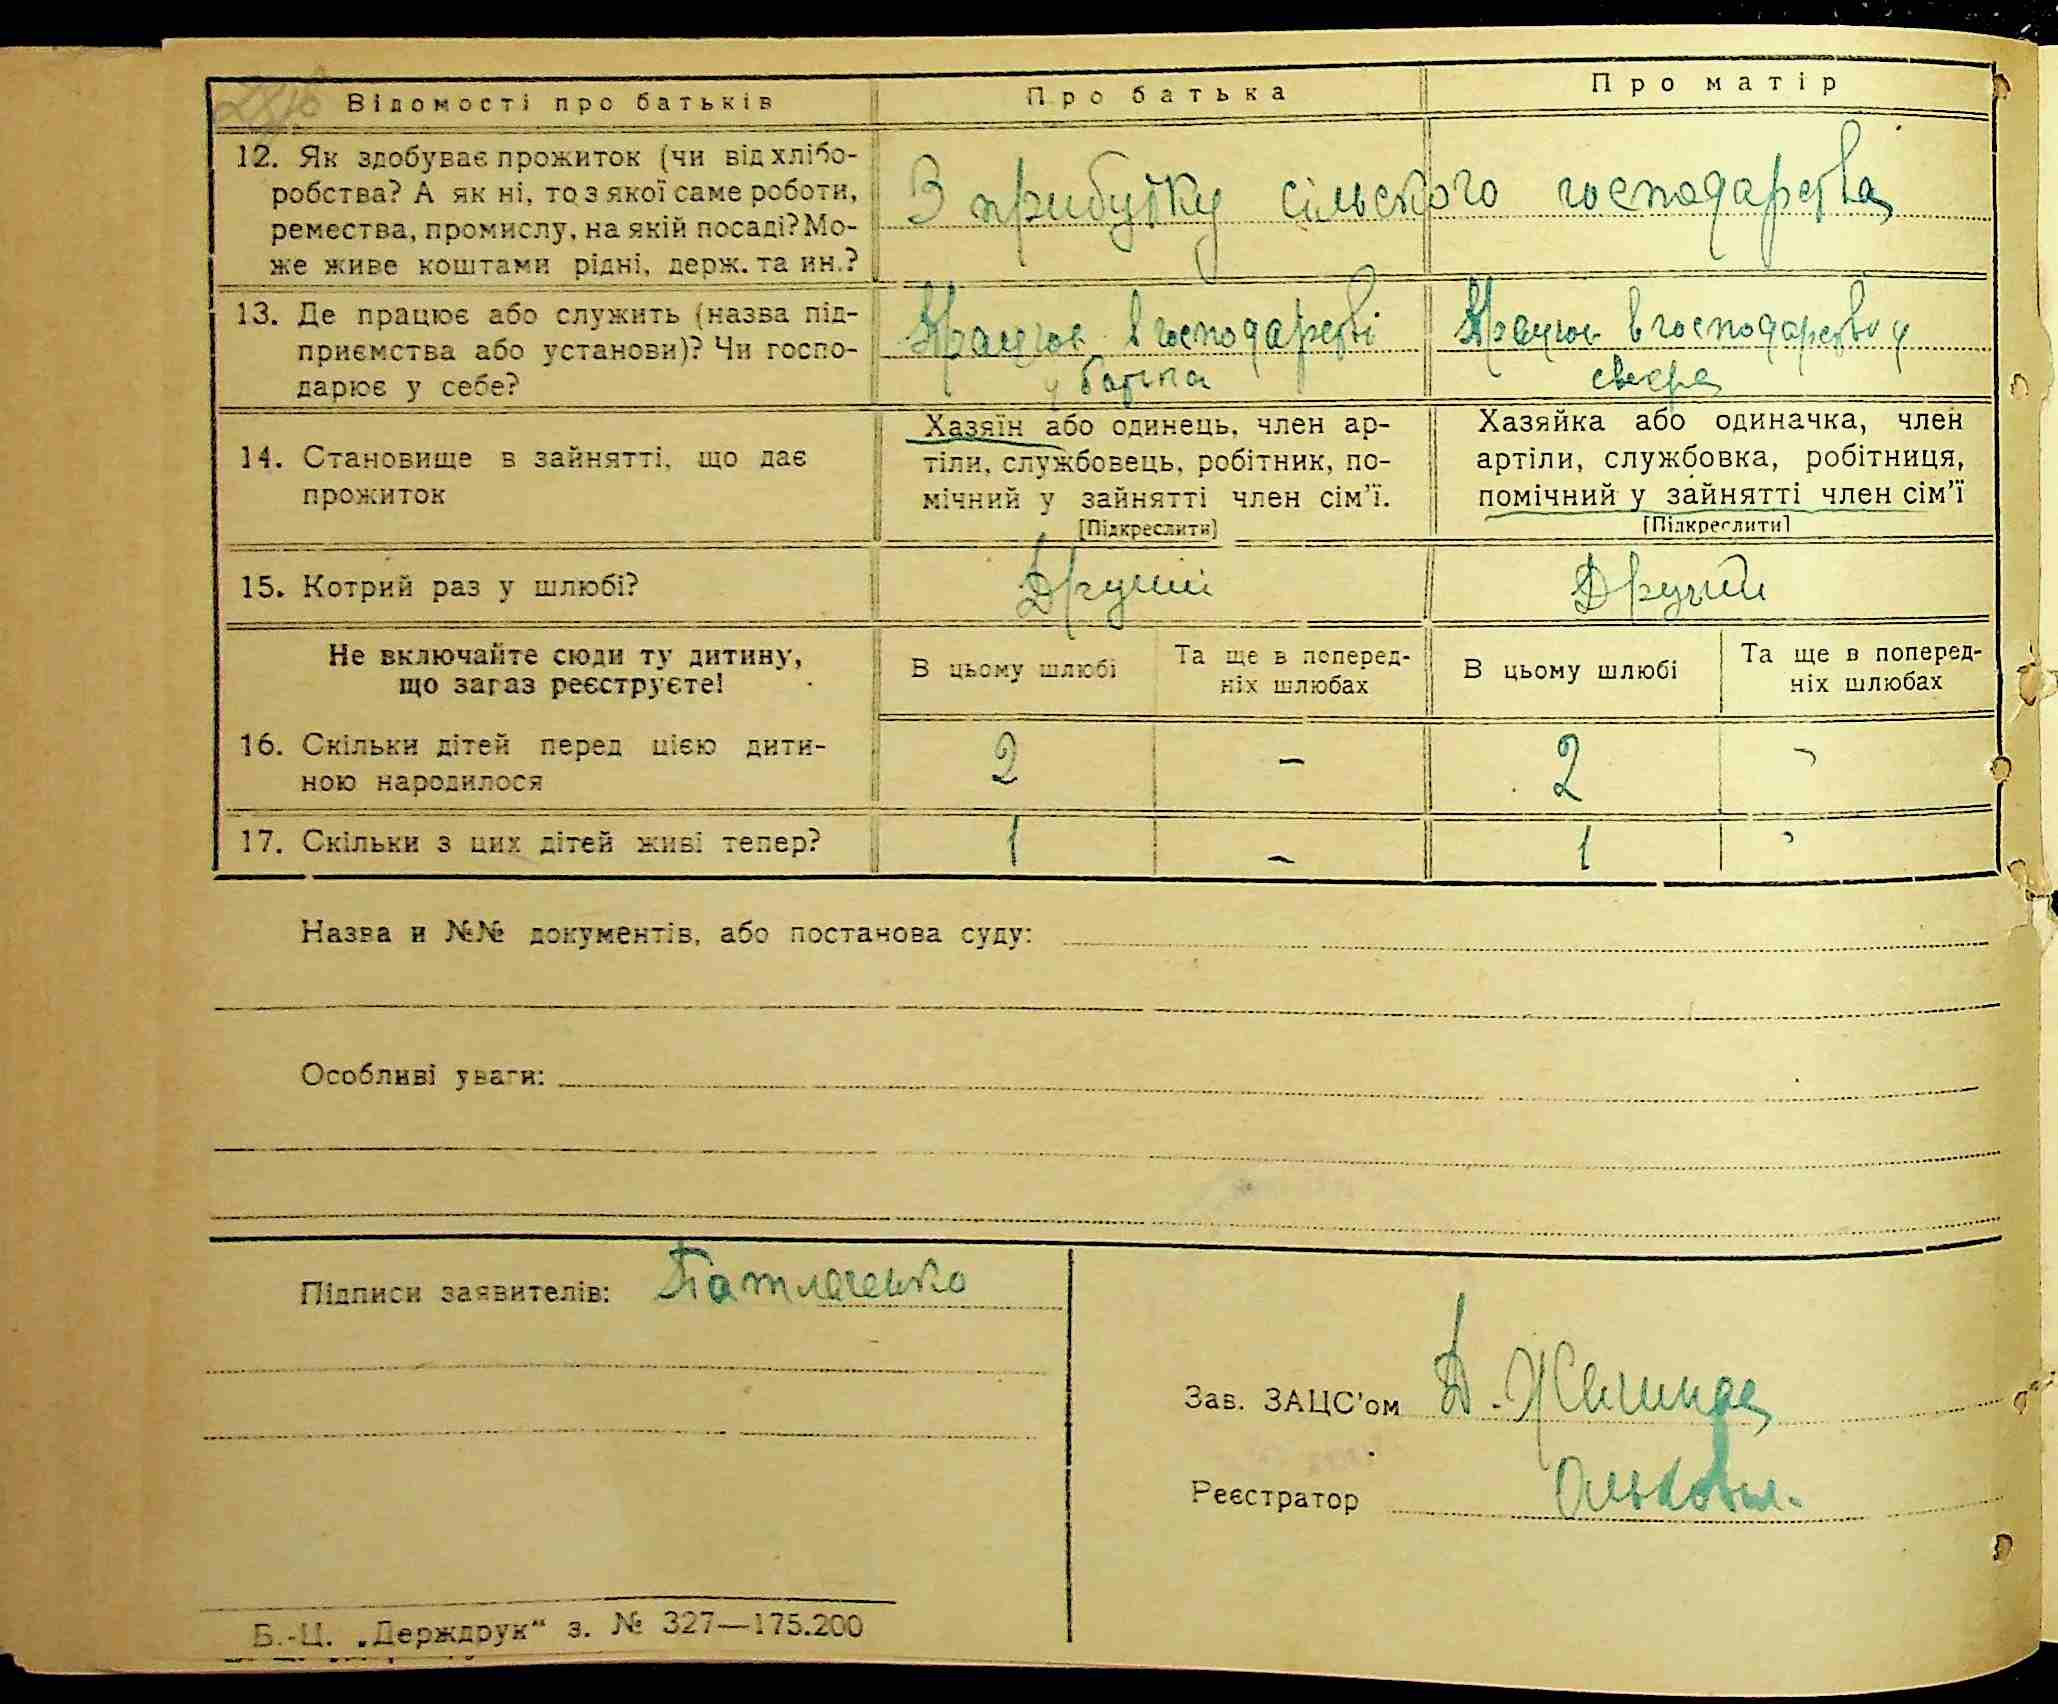 Відомості про батьків
Про батька
Про матір
12. Як здобуває прожиток (чи від хлібо-
робства? А як ні, то з якої саме роботи,
ремества, промислу, на якій посаді? Мо-
же живе коштами рідні, держ. та ин.?
З прибутку сільського господарства
13. Де працює або служить (назва під-
приємства або установи)? Чи госпо-
дарює у себе?
Працює в господарстві
у батька
Працює в господарстві у
свекра
14. Становище в зайнятті, що дає
прожиток
Хазяїн або одинець, член ар-
тіли, службовець, робітник, по-
мічний у зайнятті член сім’ї.
[Підкреслити]
Хазяйка або одиначка, член
артіли, службовка, робітниця,
помічний у зайнятті член сім’ї
[Підкреслити]
15. Котрий раз у шлюбі?
Другий
Другий
Не включайте сюди ту дитину,
що зараз реєструєте!
В цьому шлюбі
Та ще в поперед-
ніх шлюбах
В цьому шлюбі
Та ще в поперед-
ніх шлюбах
16. Скільки дітей перед цією дити-
ною народилося
2 - 2 -
17. Скільки з цих дітей живі тепер?
1 - 1 -
Назва и №№ документів, або постанова суду:
Особливі уваги:
Підписи заявителів:
Зав. ЗАЦС’ом
Реєстратор
Б.-Ц. „Держдрук“ з. № 327—175.200